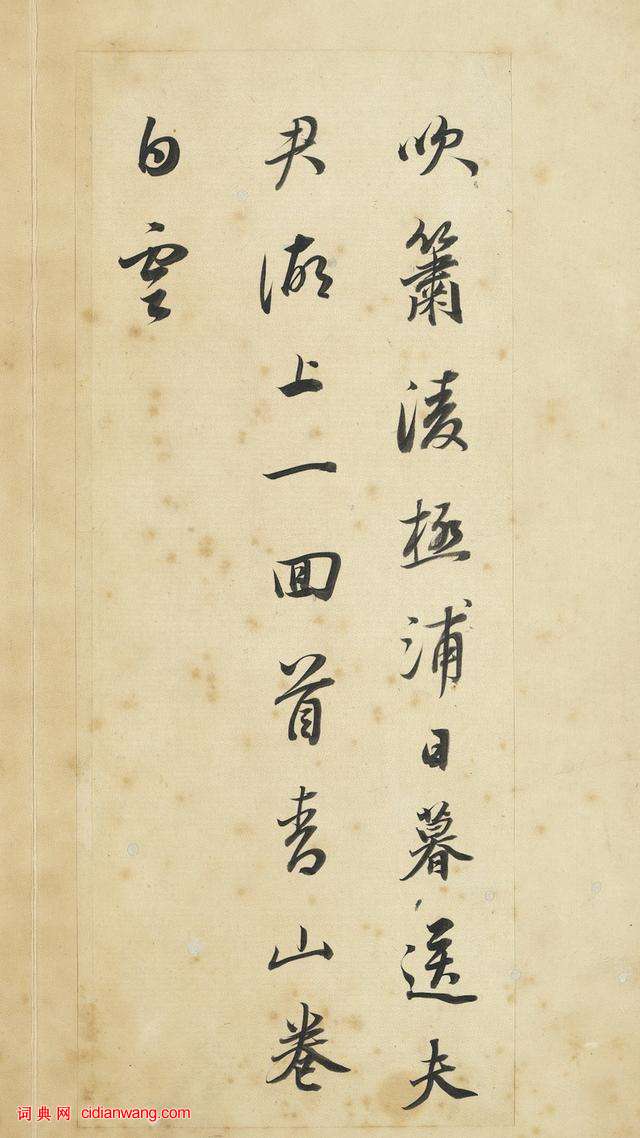 吹簫淩極浦日暮送夫
君湖上一回首青山卷
白雲
词典网 cidianwang.com